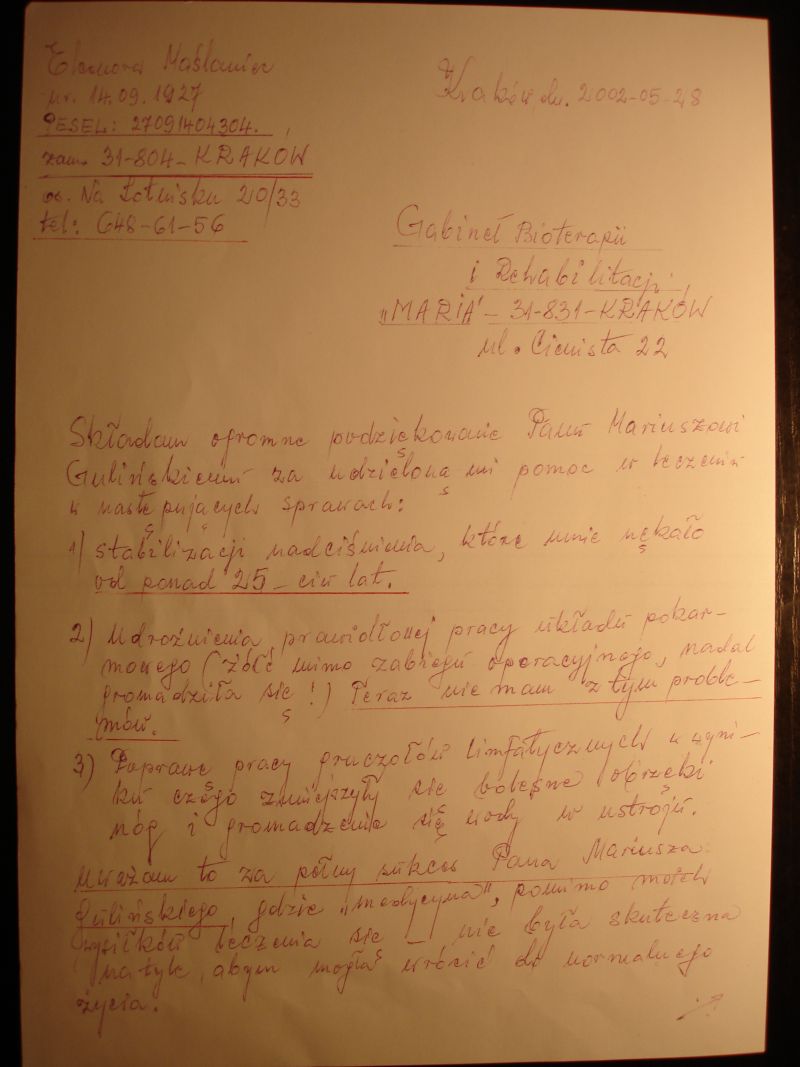 Eleonora Maślaniec
ur. 14.09.1927
PESEL: 27091404304.
zam. 31-804-KRAKÓW
os. Na Lotnisku 20/33
tel: 648-61-56
Kraków, dn. 2002-05-28
Gabinet Bioterapii
i Rehabilitacji
"MARIA" - 31-831-KRAKÓW
ul. Cienista 22
Składam ogromne podziękowanie Panu Mariuszowi
Gulińskiemu za udzieloną mi pomoc w leczeniu
w następujących sprawach:
1) stabilizacji nadciśnienia, które mnie nękało
od ponad 25-ciu lat.
2) Udrożnienia prawidłowej pracy układu pokar-
mowego (żółć mimo zabiegu operacyjnego, nadal
gromadziła się!) Teraz nie mam z tym proble-
mów.
3) Poprawę pracy gruczołów limfatycznych w wyni-
ku czego zmniejszyły się bolesne obrzęki
nóg i gromadzenie się wody w ustroju.
Uważam to za pełny sukces Pana Mariusza
Gulińskiego, gdzie "medycyna", pomimo moich
wysiłków leczenia się - nie była skuteczna
na tyle, abym mogła wrócić do normalnego
życia.